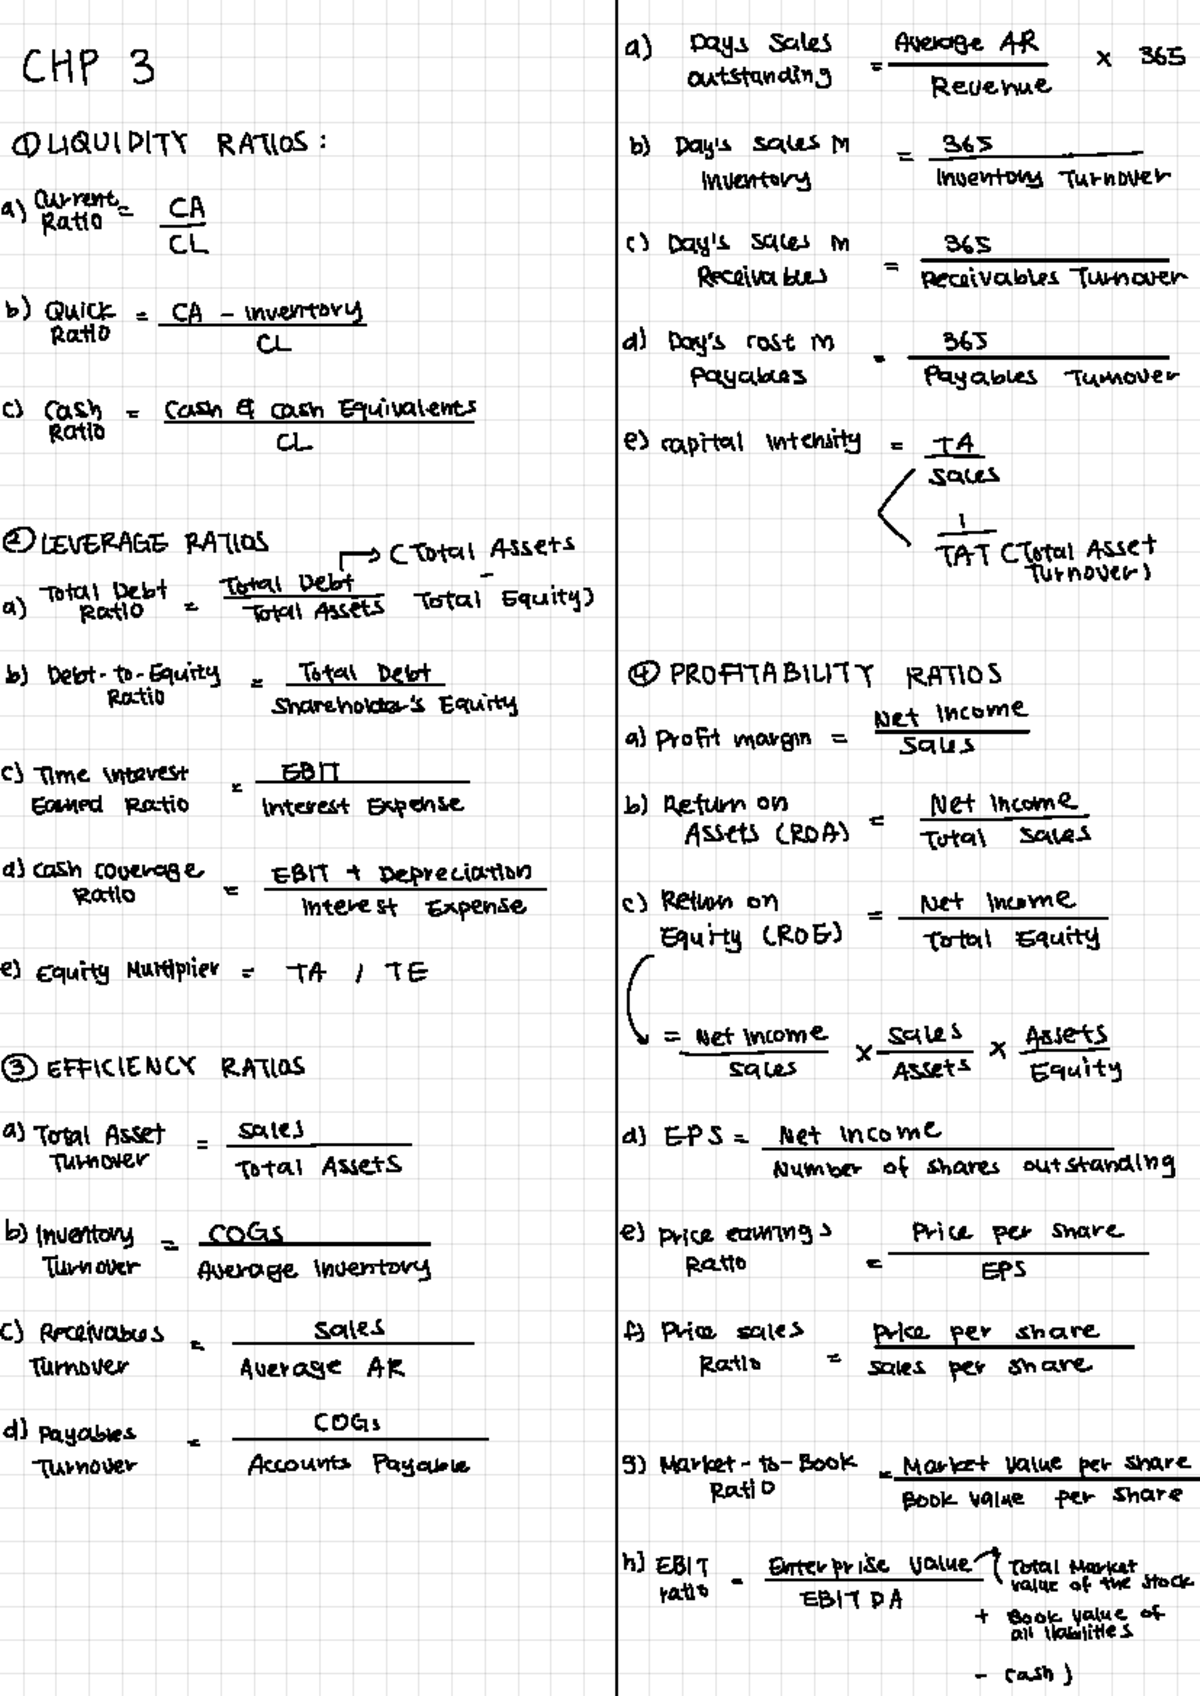 CHP 3
① LIQUIDITY RATIOS:
a) Current Ratio = CA / CL
b) Quick Ratio = CA - inventory / CL
c) Cash Ratio = Cash & Cash Equivalents / CL
② LEVERAGE RATIOS
→ (Total Assets - Total Equity)
a) Total Debt Ratio = Total Debt / Total Assets
b) Debt-to-Equity Ratio = Total Debt / Shareholder's Equity
c) Time interest Earned Ratio = EBIT / Interest Expense
d) Cash coverage Ratio = EBIT + Depreciation / Interest Expense
e) Equity Multiplier = TA / TE
③ EFFICIENCY RATIOS
a) Total Asset Turnover = Sales / Total Assets
b) Inventory Turnover = COGS / Average inventory
c) Receivables Turnover = Sales / Average AR
d) Payables Turnover = COGS / Accounts Payable
a) Days Sales outstanding = Average AR / Revenue x 365
b) Day's sales in Inventory = 365 / Inventory Turnover
c) Day's sales in Receivables = 365 / Receivables Turnover
d) Day's cost in Payables = 365 / Payables Turnover
e) Capital Intensity = TA / Sales
1 / TAT (Total Asset Turnover)
④ PROFITABILITY RATIOS
a) Profit margin = Net Income / Sales
b) Return on Assets (ROA) = Net Income / Total Sales
c) Return on Equity (ROE) = Net Income / Total Equity
= Net Income / Sales x Sales / Assets x Assets / Equity
d) EPS = Net Income / Number of shares outstanding
e) Price earnings Ratio = Price per share / EPS
f) Price sales Ratio = Price per share / Sales per share
g) Market-to-Book Ratio = Market Value per share / Book Value per share
h) EBIT ratio = Enterprise Value / EBITDA
(Total Market value of the stock
+ Book Value of all liabilities
- Cash)